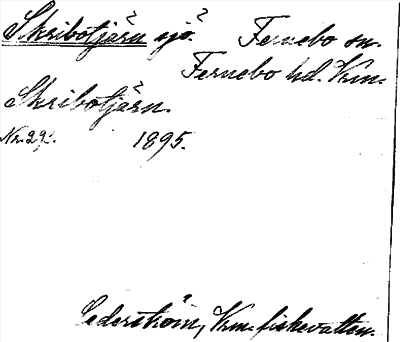 Skribotjärn sjö? Fernebo sn.
Fernebo hd. Vrm.
Skribotjärn.
Nr. 29. 1895.
Cederström, Vrm. fiskevatten.